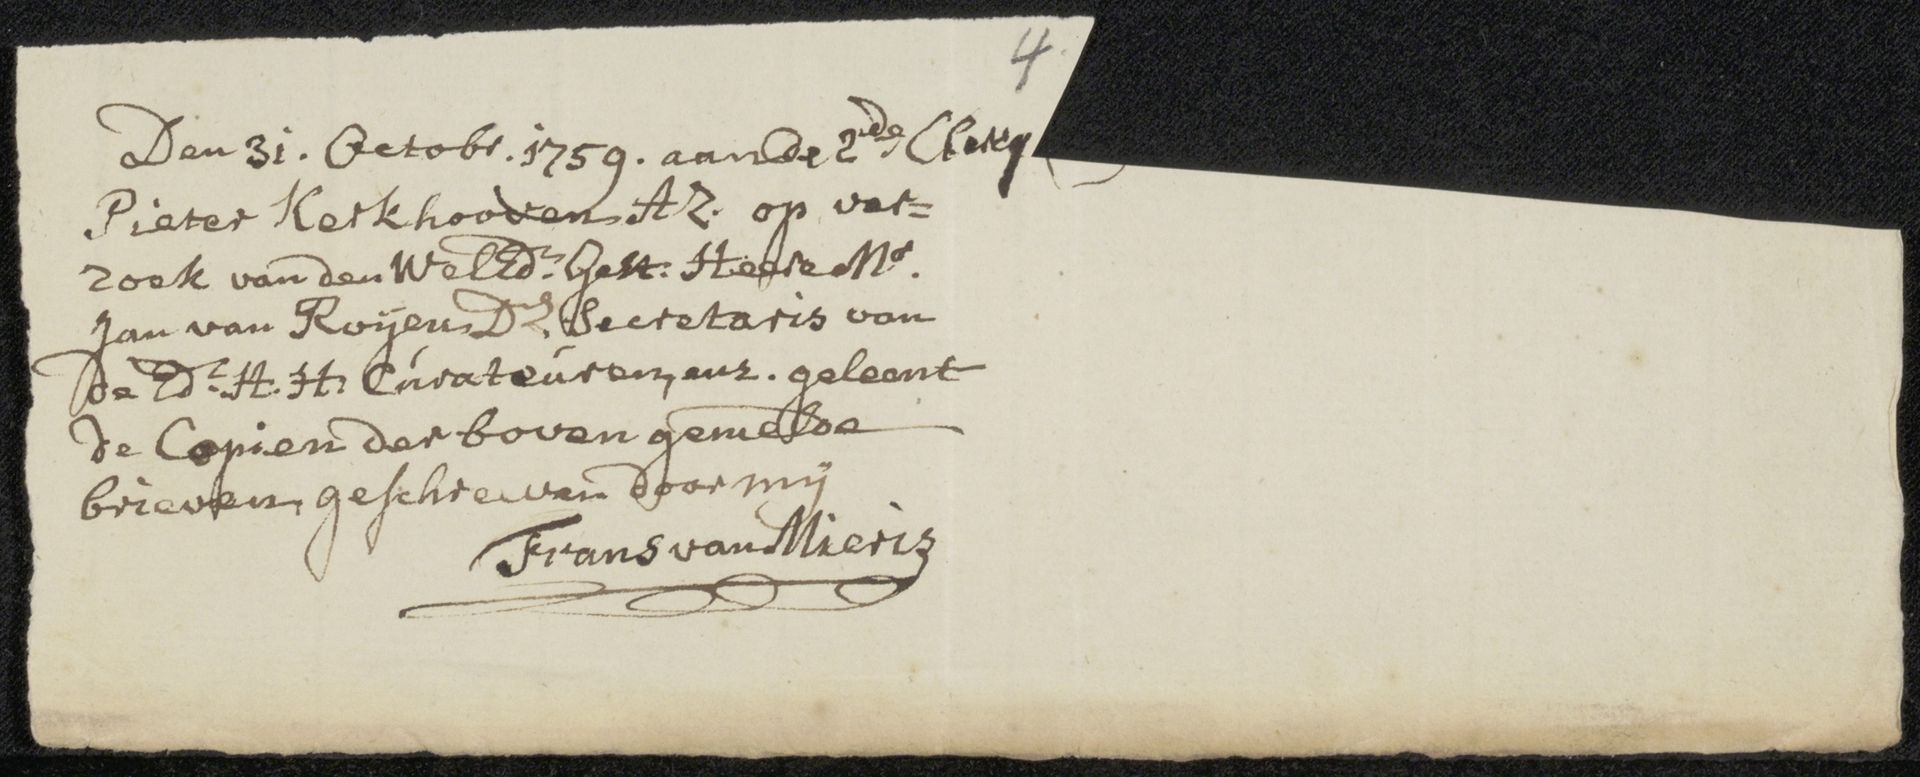 4.
Den 31. Octobr. 1759. aan de 2de Clercq
Pieter Kerkhooven AZ. op ver=
zoek van den WelEdn. Gestr. Heere Mr.
Jan van Royen Dz. Secretaris van
de Edn. H. H. Curateuren, enz. geleent
de Copien der boven gemelde
brieven, geschreeven door mij
Frans van Mieris